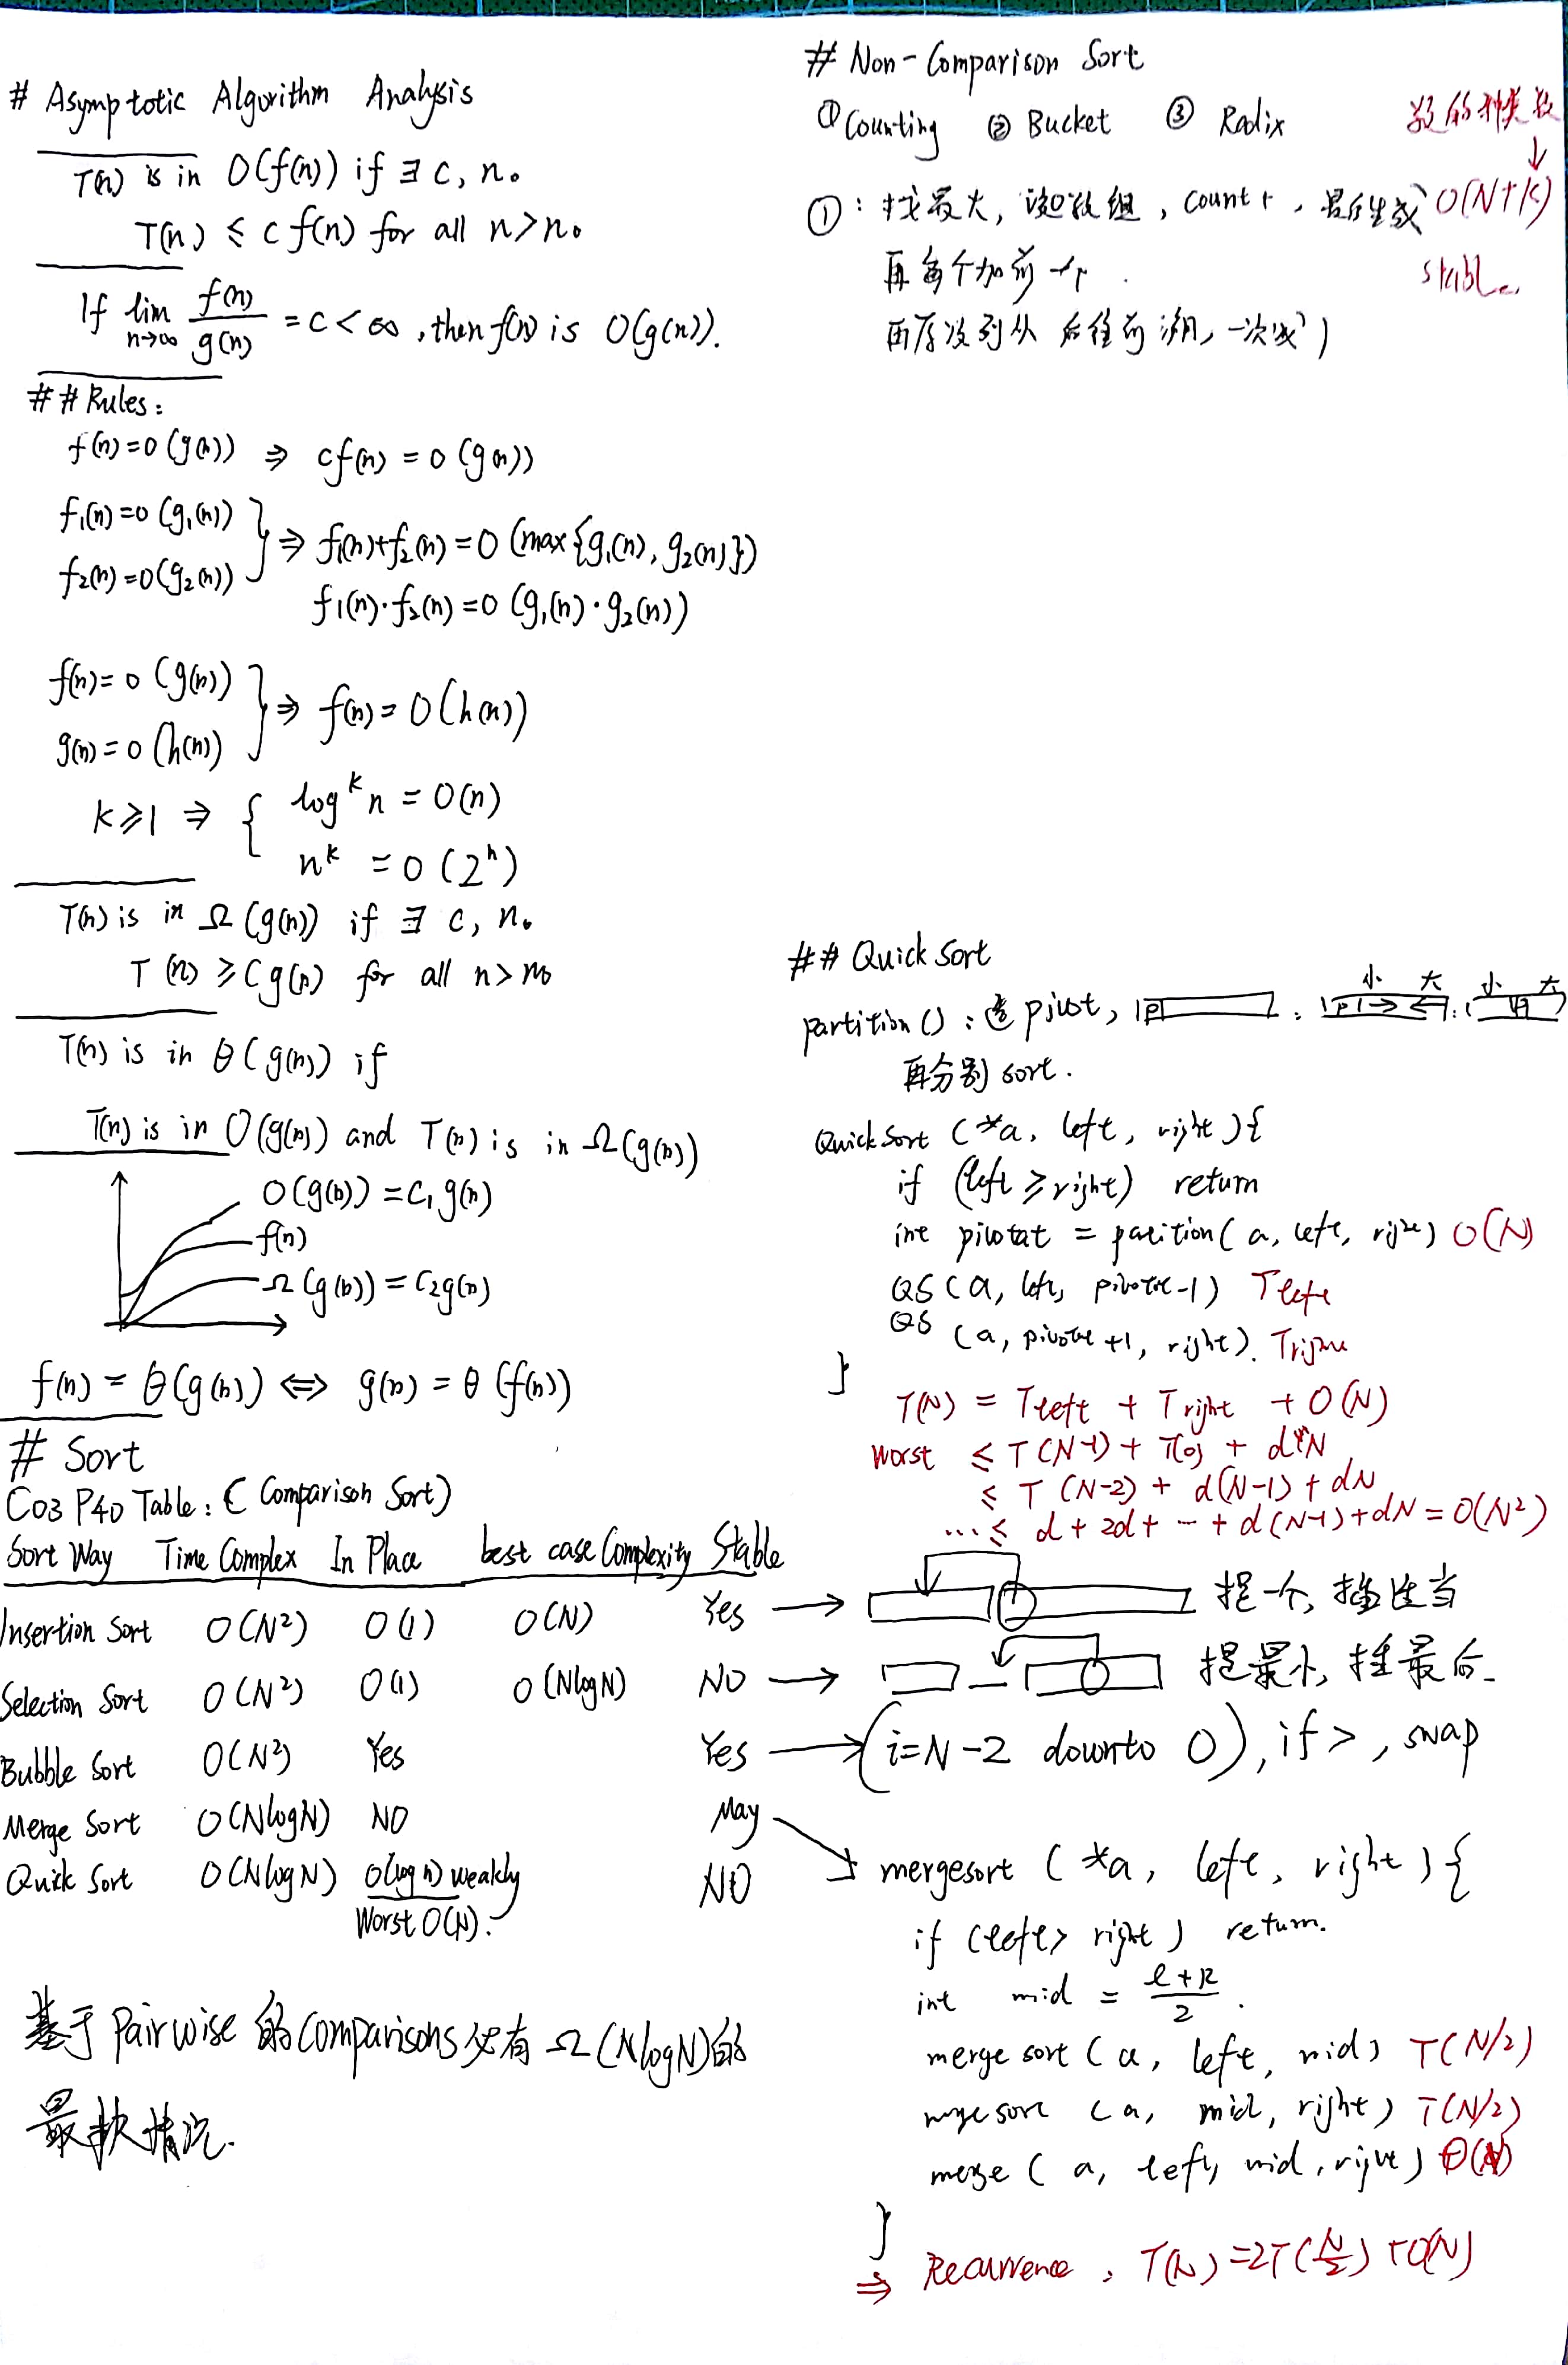 # Asymptotic Algorithm Analysis
T(n) is in O(f(n)) if ∃ c, n₀
T(n) ≤ c f(n) for all n > n₀
If lim n→∞ f(n)/g(n) = c < ∞, then f(n) is O(g(n)).
## Rules:
f(n)=O(g(n)) ⇒ cf(n) = O(g(n))
f₁(n)=O(g₁(n))
f₂(n)=O(g₂(n)) } ⇒ f₁(n)+f₂(n)=O(max{g₁(n), g₂(n)})
f₁(n)·f₂(n)=O(g₁(n)·g₂(n))
f(n)=O(g(n))
g(n)=O(h(n)) } ⇒ f(n)=O(h(n))
k≥1 ⇒ { logᵏn = O(n)
nᵏ = O(2ⁿ)
T(n) is in Ω(g(n)) if ∃ c, n₀
T(n) ≥ Cg(n) for all n > n₀
T(n) is in θ(g(n)) if
T(n) is in O(g(n)) and T(n) is in Ω(g(n))
O(g(n)) = C₁g(n)
f(n)
Ω(g(n)) = C₂g(n)
f(n) = θ(g(n)) ⇔ g(n) = θ(f(n))
# Sort
C03 P40 Table: (Comparison Sort)
Sort Way Time Complex In Place best case Complexity Stable
Insertion Sort O(N²) O(1) O(N) Yes →
Selection Sort O(N²) O(1) O(NlogN) NO →
Bubble Sort O(N²) Yes Yes →
Merge Sort O(NlogN) NO May
Quick Sort O(NlogN) O(log n) weakly NO
Worst O(N).
基于 Pairwise 的 Comparisons 必有 Ω(NlogN)的
最 情况.
# Non-Comparison Sort
① Counting ② Bucket ③ Radix
数的种类数
↓
①: 找最大, 数组, count+, 最后生成 O(N+K)
再每个加前一个. stable
从后往前
## Quick Sort
partition(): 选 pivot, P : P → ← :
小 大 小 大
再分别 sort.
QuickSort (*a, left, right){
if (left ≥ right) return
int pivotat = partition(a, left, right) O(N)
QS(a, left, pivotat-1) Tleft
QS(a, pivotat+1, right). Tright
}
T(N) = Tleft + Tright + O(N)
Worst ≤ T(N-1) + T(0) + dN
≤ T(N-2) + d(N-1) + dN
... ≤ d + 2d + ... + d(N-1) + dN = O(N²)
提一个, 插 当
提最小, 最后
(i=N-2 downto 0), if >, swap
mergesort (*a, left, right){
if (left > right) return.
int mid = l+R/2.
merge sort (a, left, mid) T(N/2)
merge sort (a, mid, right) T(N/2)
merge (a, left, mid, right) Θ(N)
}
⇒ Recurrence, T(N) = 2T(N/2) + O(N)